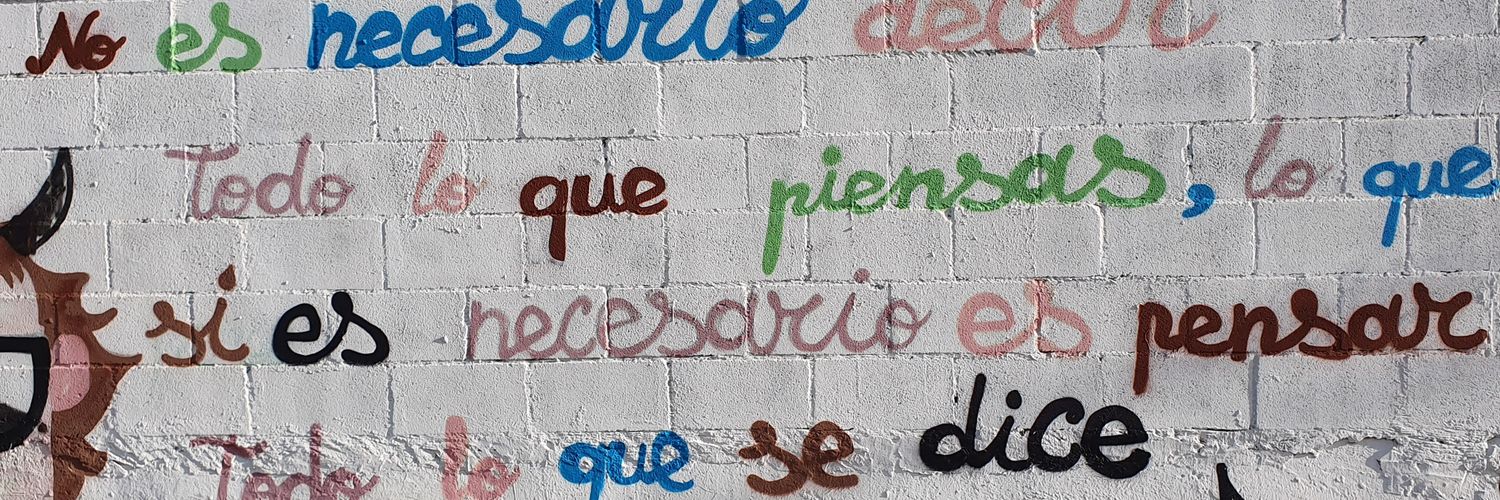 No es necesario decir
Todo lo que piensas, lo que
si es necesario es pensar
Todo lo que se dice